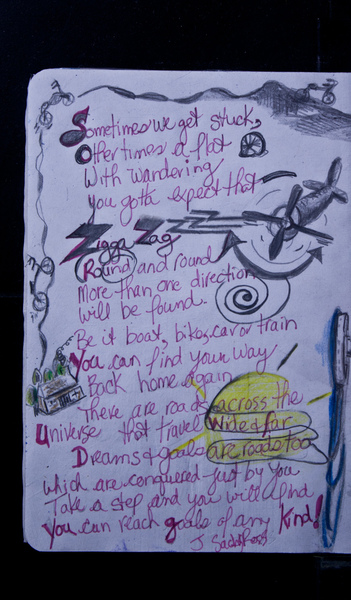 Sometimes we get stuck,
Other times a flat
With wandering
you gotta expect that
Zigga Zag
Round and round
More than one direction
will be found.
Be it boat, bike, car or train
You can find your way
Back home again
There are roads across the
Universe that travel wide & far
Dreams & goals are roads too
which are conquered just by you
Take a step and you will find
you can reach goals of any kind!
J